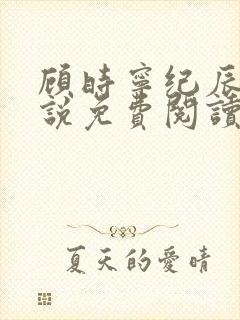 顾時寧纪辰
說免費閱讀
夏天的愛晴